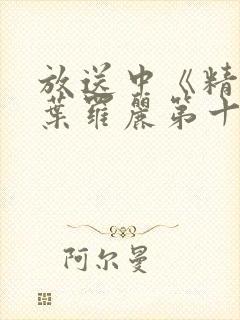 放送中《精
葉罗麗第十
阿尔曼